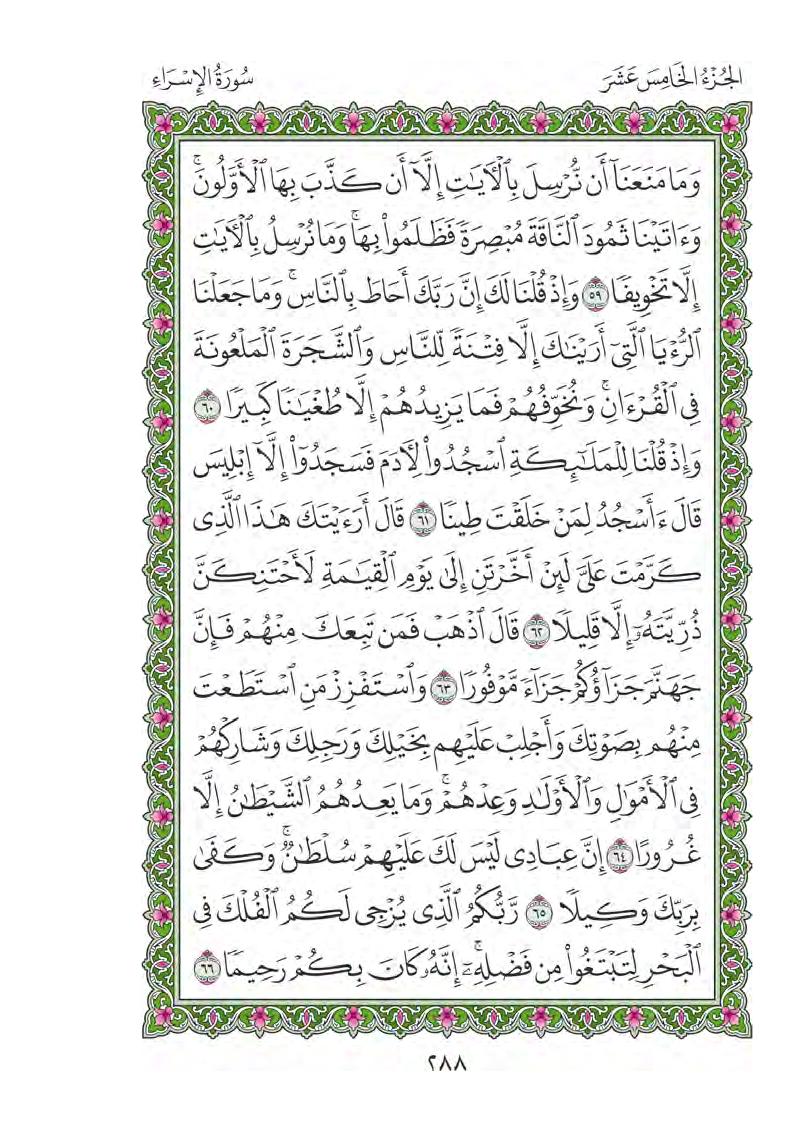 الجُزْءُ الخَامِسَ عَشَرَ
سُورَةُ الإِسْرَاءِ
وَمَا مَنَعَنَآ أَن نُّرْسِلَ بِٱلْأٓيَٰتِ إِلَّآ أَن كَذَّبَ بِهَا ٱلْأَوَّلُونَۚ
وَءَاتَيْنَا ثَمُودَ ٱلنَّاقَةَ مُبْصِرَةً فَظَلَمُواْ بِهَاۚ وَمَا نُرْسِلُ بِٱلْأٓيَٰتِ
إِلَّا تَخْوِيفًا ٥٩ وَإِذْ قُلْنَا لَكَ إِنَّ رَبَّكَ أَحَاطَ بِٱلنَّاسِۚ وَمَا جَعَلْنَا
ٱلرُّءْيَا ٱلَّتِىٓ أَرَيْنَٰكَ إِلَّا فِتْنَةً لِّلنَّاسِ وَٱلشَّجَرَةَ ٱلْمَلْعُونَةَ
فِى ٱلْقُرْءَانِۚ وَنُخَوِّفُهُمْ فَمَا يَزِيدُهُمْ إِلَّا طُغْيَٰنًا كَبِيرًا ٦٠
وَإِذْ قُلْنَا لِلْمَلَٰٓئِكَةِ ٱسْجُدُواْ لِأٓدَمَ فَسَجَدُوٓاْ إِلَّآ إِبْلِيسَ
قَالَ ءَأَسْجُدُ لِمَنْ خَلَقْتَ طِينًا ٦١ قَالَ أَرَءَيْتَكَ هَٰذَا ٱلَّذِى
كَرَّمْتَ عَلَىَّ لَئِنْ أَخَّرْتَنِ إِلَىٰ يَوْمِ ٱلْقِيَٰمَةِ لَأَحْتَنِكَنَّ
ذُرِّيَّتَهُۥٓ إِلَّا قَلِيلًا ٦٢ قَالَ ٱذْهَبْ فَمَن تَبِعَكَ مِنْهُمْ فَإِنَّ
جَهَنَّمَ جَزَآؤُكُمْ جَزَآءً مَّوْفُورًا ٦٣ وَٱسْتَفْزِزْ مَنِ ٱسْتَطَعْتَ
مِنْهُم بِصَوْتِكَ وَأَجْلِبْ عَلَيْهِم بِخَيْلِكَ وَرَجِلِكَ وَشَارِكْهُمْ
فِى ٱلْأَمْوَٰلِ وَٱلْأَوْلَٰدِ وَعِدْهُمْۚ وَمَا يَعِدُهُمُ ٱلشَّيْطَٰنُ إِلَّا
غُرُورًا ٦٤ إِنَّ عِبَادِى لَيْسَ لَكَ عَلَيْهِمْ سُلْطَٰنٌۚ وَكَفَىٰ
بِرَبِّكَ وَكِيلًا ٦٥ رَّبُّكُمُ ٱلَّذِى يُزْجِى لَكُمُ ٱلْفُلْكَ فِى
ٱلْبَحْرِ لِتَبْتَغُواْ مِن فَضْلِهِۦٓۚ إِنَّهُۥ كَانَ بِكُمْ رَحِيمًا ٦٦
٢٨٨